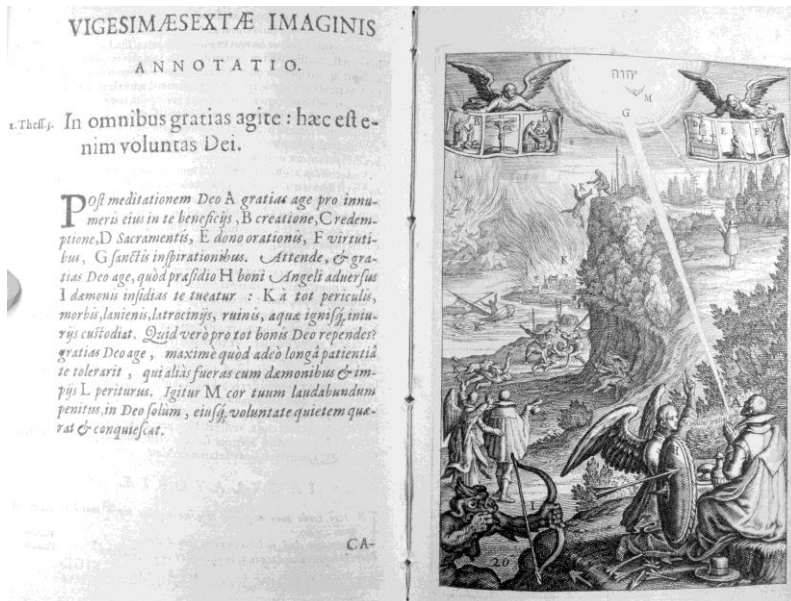 VIGESIMÆSEXTÆ IMAGINIS
ANNOTATIO.
1. Thess. 5. In omnibus gratias agite : hæc est e-
nim voluntas Dei.
Post meditationem Deo A gratias age pro innu-
meris eius in te beneficijs, B creatione, C redem-
ptione, D Sacramentis, E dono orationis, F virtuti-
bus, G sanctis inspirationibus. Attende, & gra-
tias Deo age, quòd præsidio H boni Angeli adversus
I dæmonis insidias te tueatur : K à tot periculis,
morbis, lanienis, latrocinijs, ruinis, aquæ ignisq, iniu-
rijs custodiat. Quid verò pro tot bonis Deo rependes?
gratias Deo age, maximè quòd adeò longâ patientiâ
te tolerarit, qui aliàs fueras cum dæmonibus & im-
pijs L periturus. Igitur M cor tuum laudabundum
penitus, in Deo solùm, eiusq, voluntate quietem quæ-
rat & conquiescat.
CA-
יהוה
M
G
B
E
F
L
K
K
26